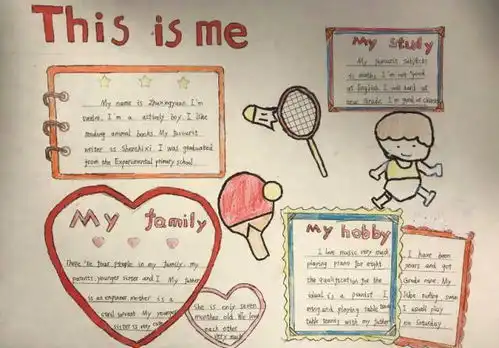 This is me
My name is Zhuxingyuan I'm
twelve. I'm a actively boy. I like
reading animal books. My favourit
writer is Shenshixi I was graduated
from the Experimental primary school
My study
My favourit subjects
is maths. I'm not good
at English. I will hard at
new Grade. I'm good at
My family
There 're four people in my family. my
parents, younger sister and I My father
is an engineer mother is a
civil servant My younger
sister is very cute
She is only seven
months old We love
each other
very much
My hobby
I love music very much
playing piano for eight
the qualification for the
is a pianist. I
enjoy and playing table
table tennis with my father
I have been
years and got
Grade nine. My
I like swim
I usual play
on Saturday